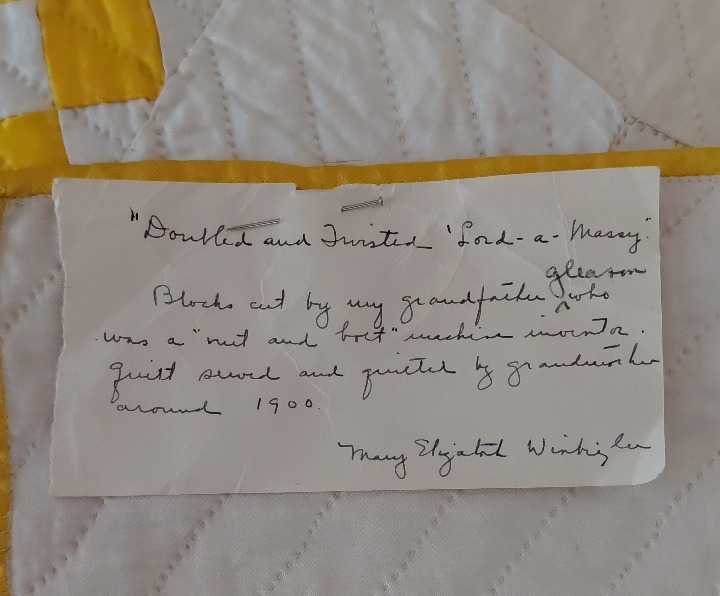 "Doubled and Twisted 'Lord-a-Massy".
gleason
Blocks cut by my grandfather ^ who
was a "nut and bolt" machine inventor.
Quilt sewed and quilted by grandmother
around 1900.
Mary Elizabeth